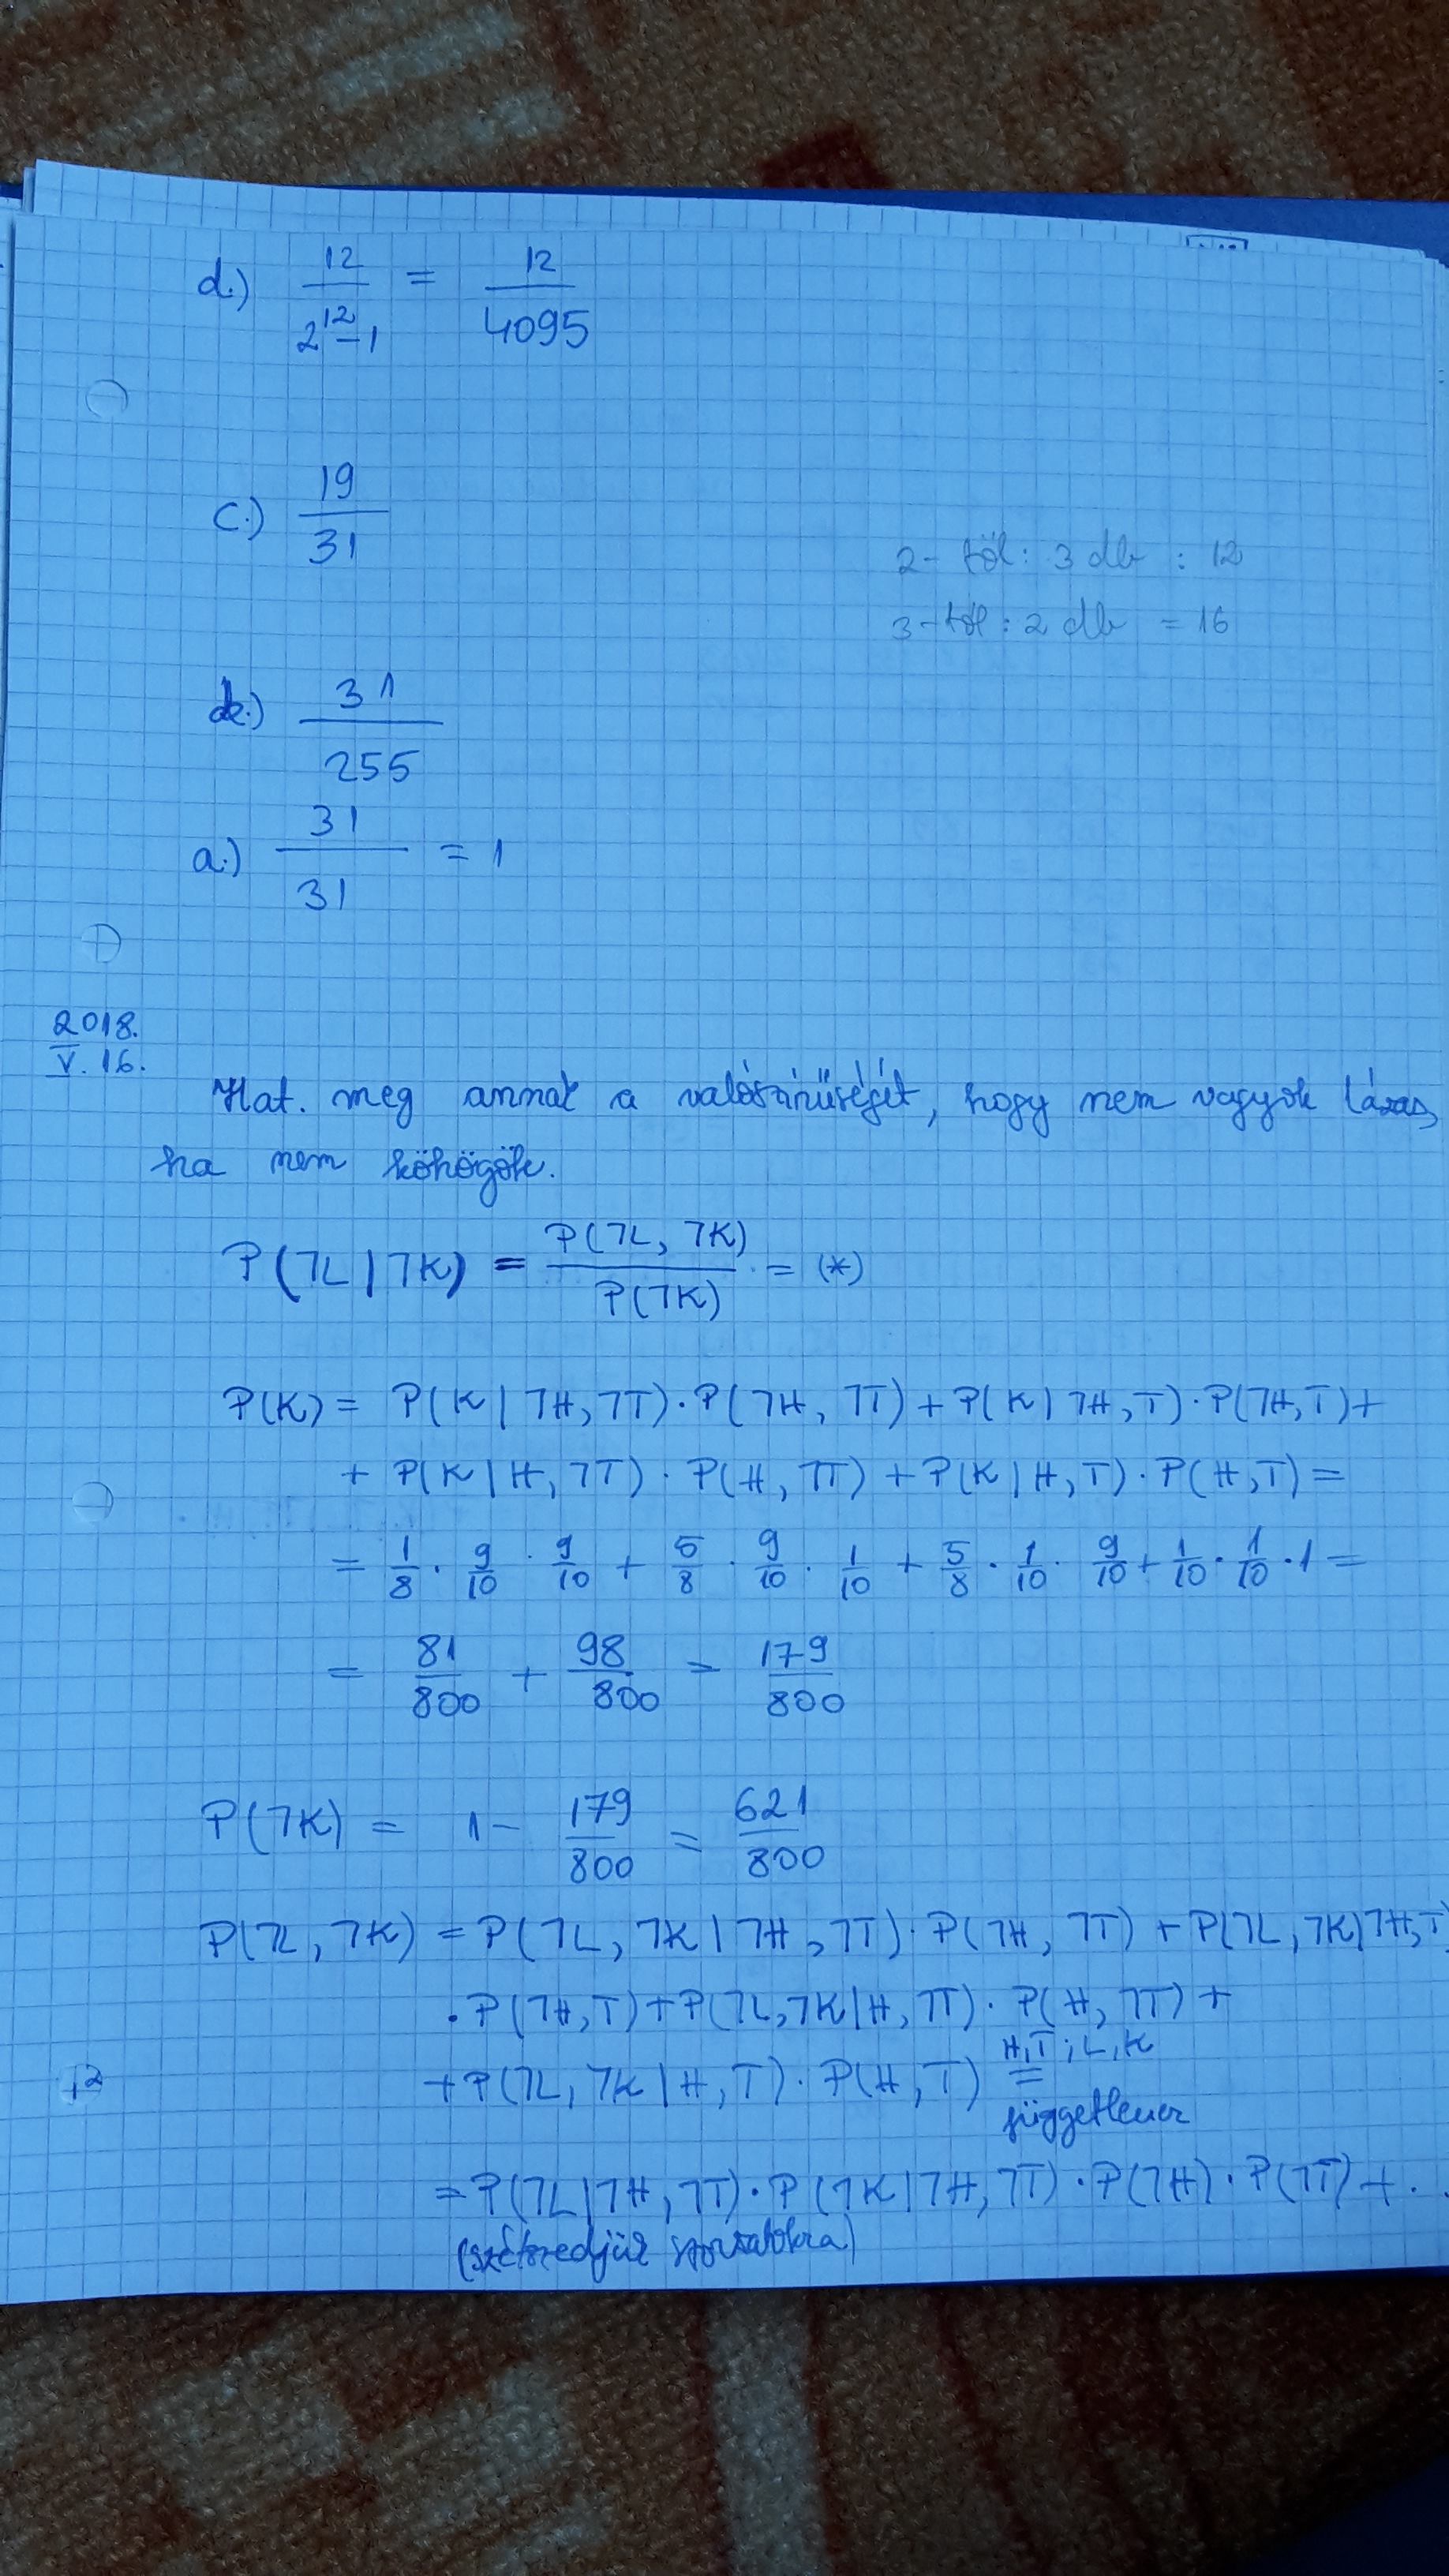 d.) 12/(2^12 - 1) = 12/4095
c.) 19/31
2-től: 3 db : 12
3-tól: 2 db = 16
b.) 31/255
a.) 31/31 = 1
2018.
V. 16.
Hat. meg annak a valószínűségét, hogy nem vagyok lázas,
ha nem köhögök.
P(¬L|¬K) = P(¬L, ¬K)/P(¬K) = (*)
P(K) = P(K|¬H,¬T)·P(¬H,¬T) + P(K|¬H,T)·P(¬H,T) +
+ P(K|H,¬T)·P(H,¬T) + P(K|H,T)·P(H,T) =
= 1/8 · 9/10 · 9/10 + 5/8 · 9/10 · 1/10 + 5/8 · 1/10 · 9/10 + 1/10 · 1/10 · 1 =
= 81/800 + 98/800 = 179/800
P(¬K) = 1 - 179/800 = 621/800
P(¬L, ¬K) = P(¬L, ¬K|¬H, ¬T)·P(¬H, ¬T) + P(¬L, ¬K|¬H,T)
·P(¬H,T) + P(¬L,¬K|H,¬T)·P(H,¬T) +
H,T; L,K
+ P(¬L, ¬K|H,T)·P(H,T) =
+2
függetlenek
= P(¬L|¬H,¬T)·P(¬K|¬H,¬T)·P(¬H)·P(¬T) + ..
(szétszedjük szorzatokra)